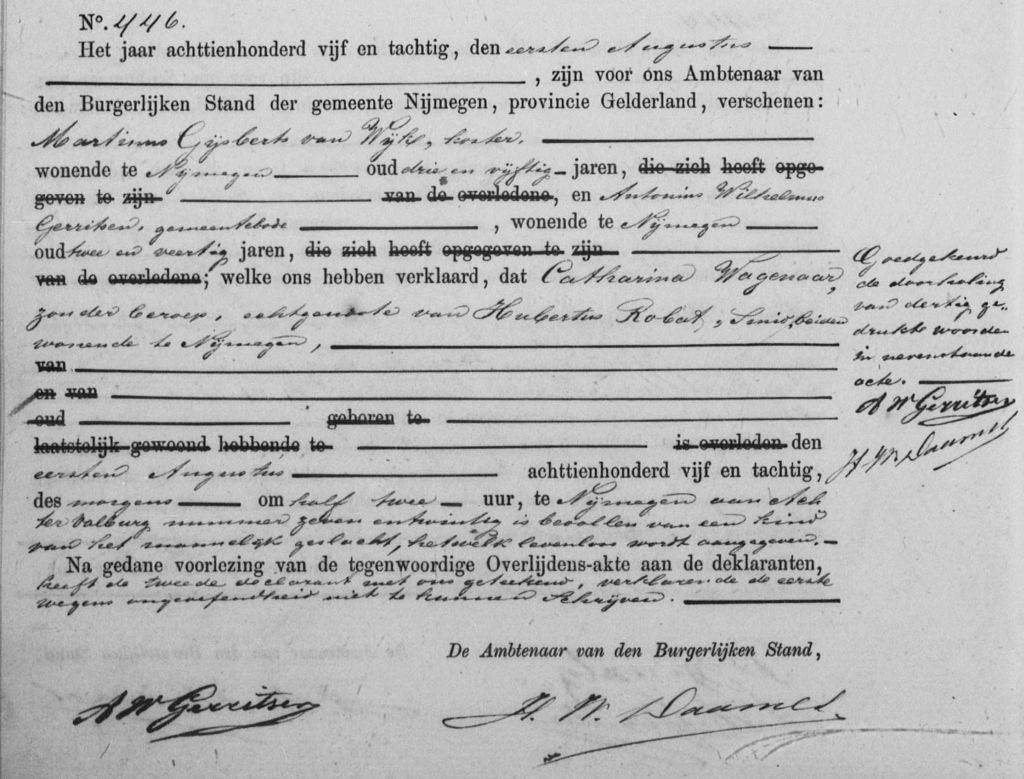 No. 446.
Het jaar achttienhonderd vijf en tachtig, den eersten Augustus
, zijn voor ons Ambtenaar van
den Burgerlijken Stand der gemeente Nijmegen, provincie Gelderland, verschenen:
Martinus Gijsberts van Wijk, koster.
wonende te Nijmegen oud drie en vijftig jaren, die zich heeft opge-
geven te zijn van de overledene, en Antonius Wilhelmus
Gerritsen, gemeentebode, wonende te Nijmegen
oud twee en veertig jaren, die zich heeft opgegeven te zijn
van de overledene; welke ons hebben verklaard, dat Catharina Wagenaar,
zonder beroep, echtgenoote van Hubertus Robat, Smid, beiden
wonende te Nijmegen,
van
en van
oud geboren te
laatstelijk gewoond hebbende te is overleden den
eersten Augustus achttienhonderd vijf en tachtig,
des morgens om half twee uur, te Nijmegen aan Ach
ter Valburg nummer zeven entwintig is bevallen van een kind
van het mannelijk geslacht, hetwelk levenloos wordt aangegeven.
Na gedane voorlezing van de tegenwoordige Overlijdens-akte aan de deklaranten,
heeft de tweede declarant met ons geteekend, verklarende de eerste
wegens ongeoefendheid niet te kunnen schrijven.
De Ambtenaar van den Burgerlijken Stand,
A W Gerritsen
H. W. Daamen
Goedgekeurd
de doorhaling
van dertig ge-
drukte woorden
in nevenstaande
acte.
A W Gerritsen
H. W. Daamen